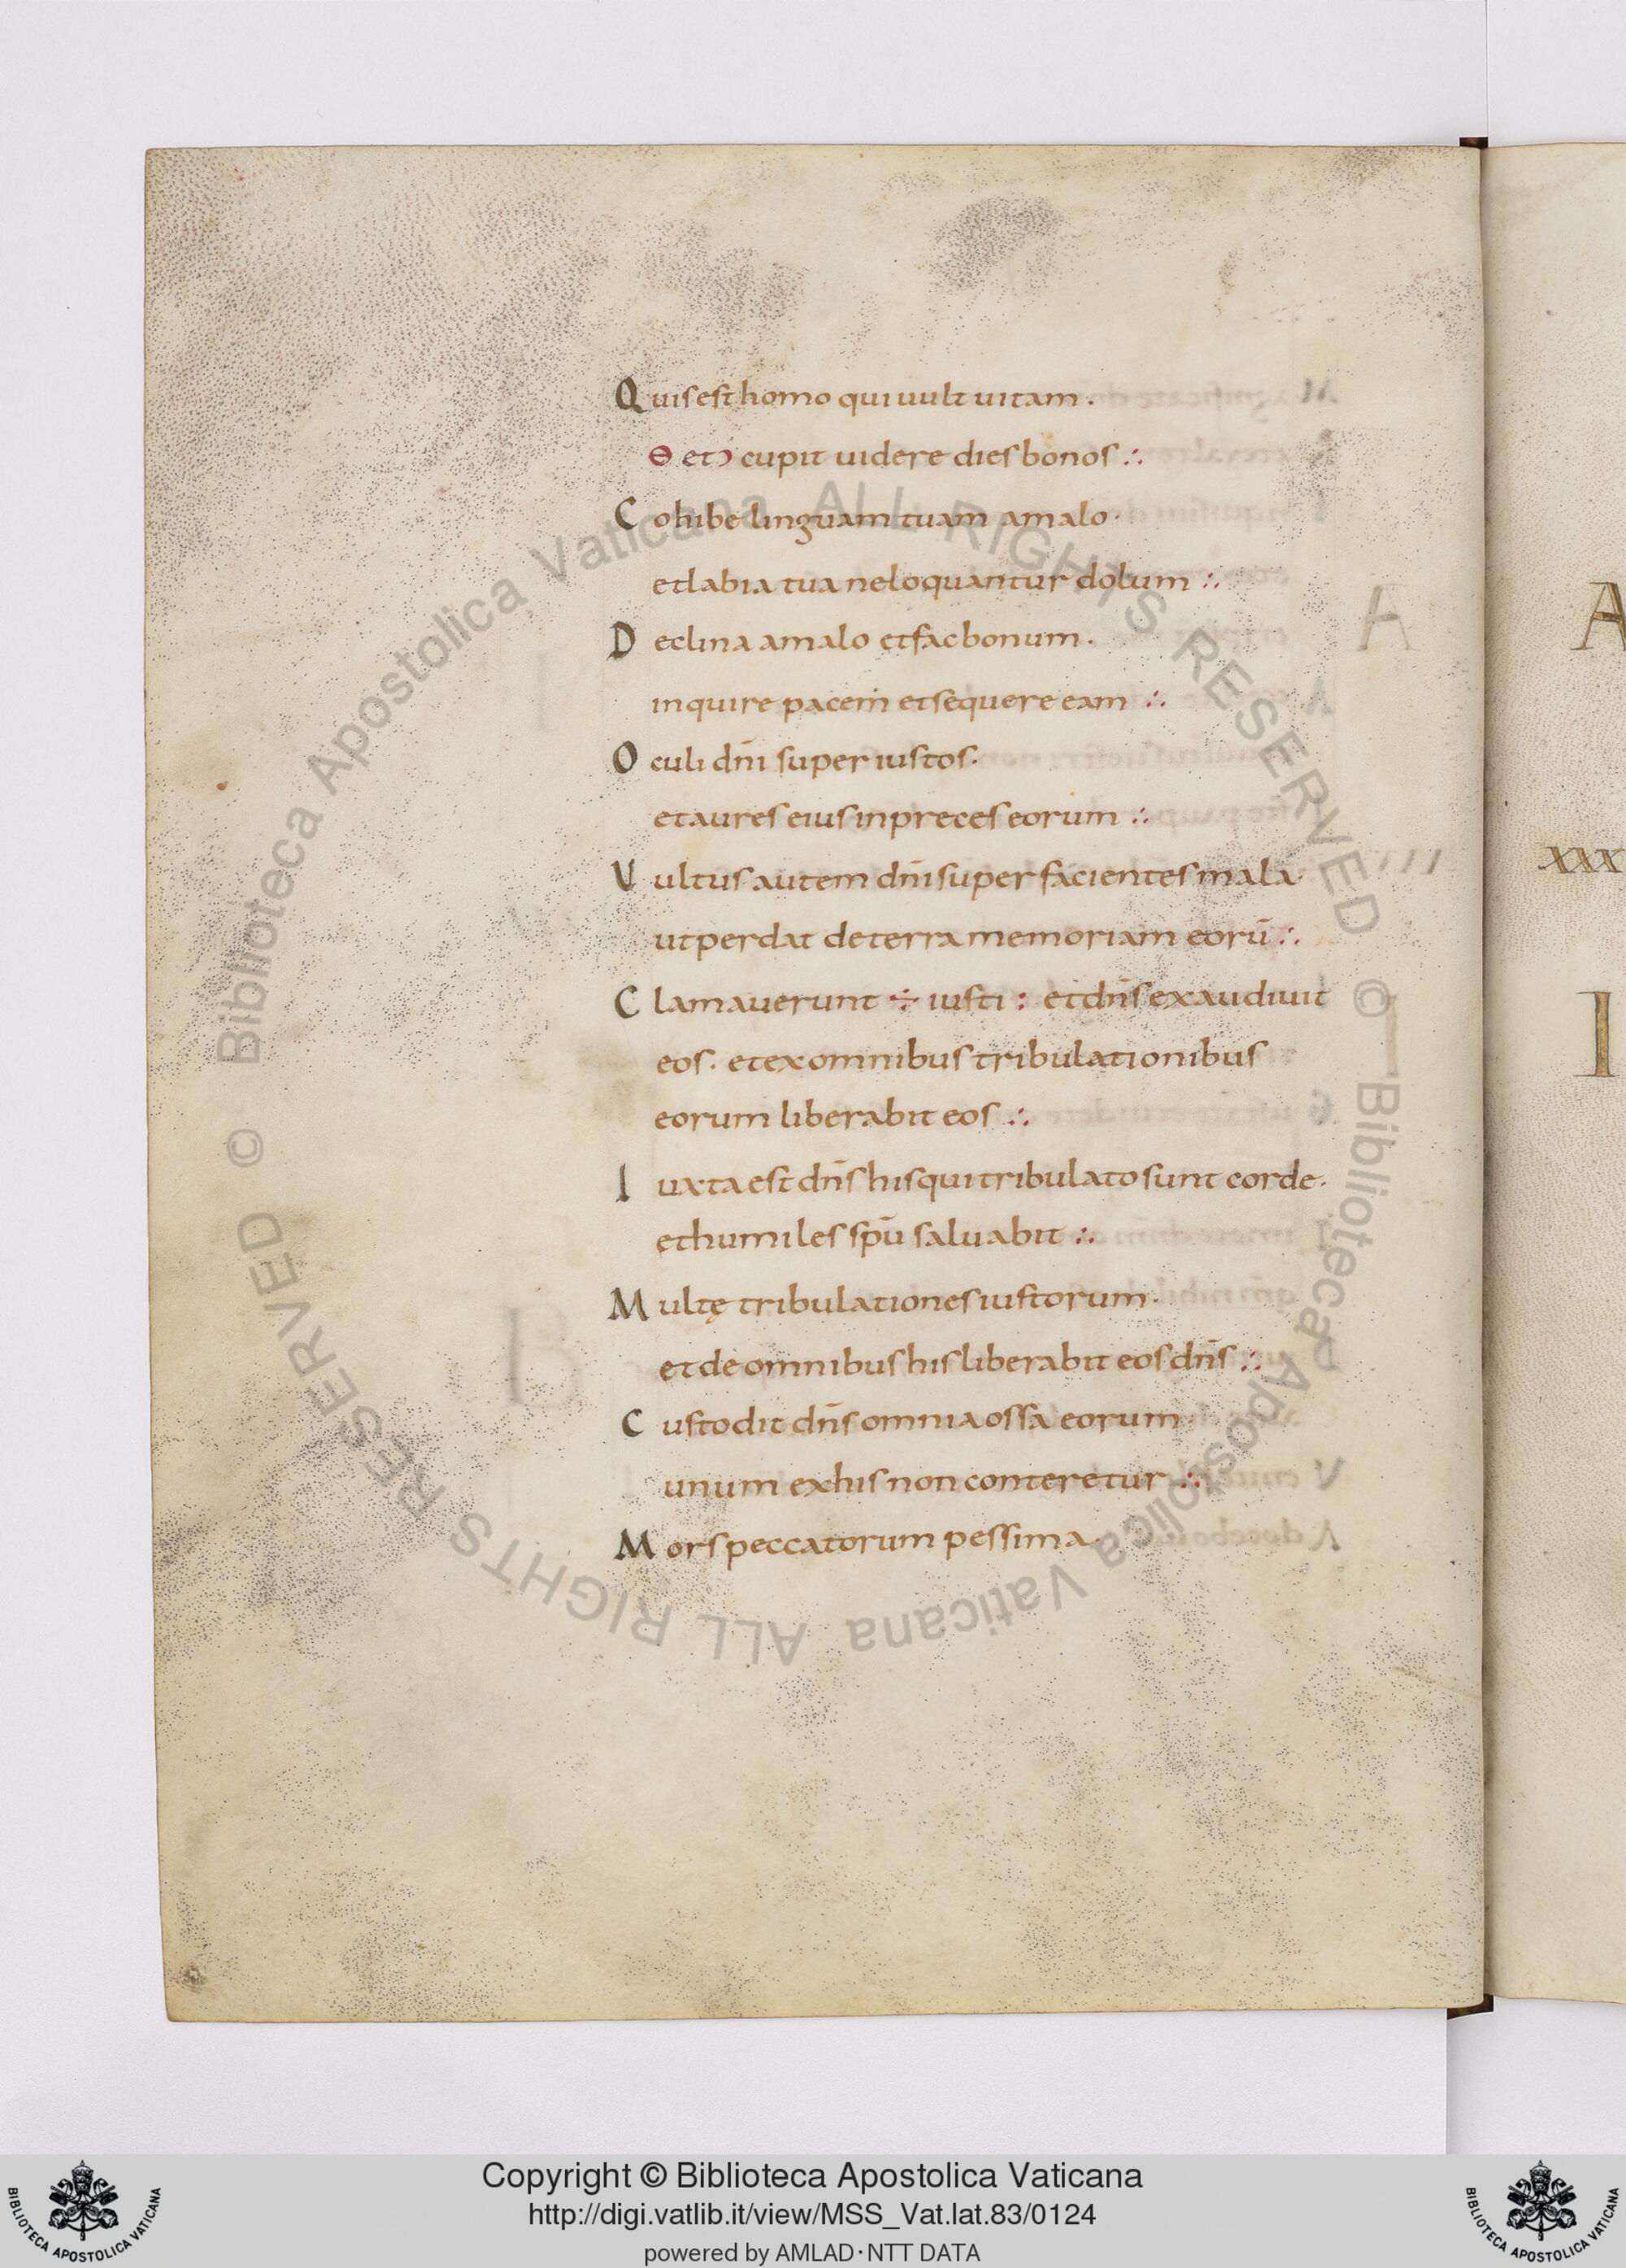 Quis est homo qui uult uitam .
Ɵ et ↄ cupit uidere dies bonos :.
Cohibe linguam tuam a malo .
et labia tua ne loquantur dolum :.
Declina a malo et fac bonum .
inquire pacem et sequere eam :.
Oculi dnī super iustos .
et aures eius in preces eorum :.
Uultus autem dnī super facientes mala .
ut perdat de terra memoriam eorū :.
Clamauerunt ÷ iusti : et dn̄s exaudiuit
eos . et ex omnibus tribulationibus
eorum liberabit eos :.
Iuxta est dn̄s his qui tribulato sunt corde .
et humiles spū saluabit :.
Multę tribulationes iustorum .
et de omnibus his liberabit eos dn̄s :.
Custodit dn̄s omnia ossa eorum .
unum ex his non conteretur :.
Mors peccatorum pessima .
A
XXX
I
© Biblioteca Apostolica Vaticana ALL RIGHTS RESERVED © Biblioteca Apostolica Vaticana ALL RIGHTS RESERVED
Copyright © Biblioteca Apostolica Vaticana
http://digi.vatlib.it/view/MSS_Vat.lat.83/0124
powered by AMLAD·NTT DATA
BIBLIOTECA APOSTOLICA VATICANA
BIBLIOTECA APOSTOLICA VATICANA